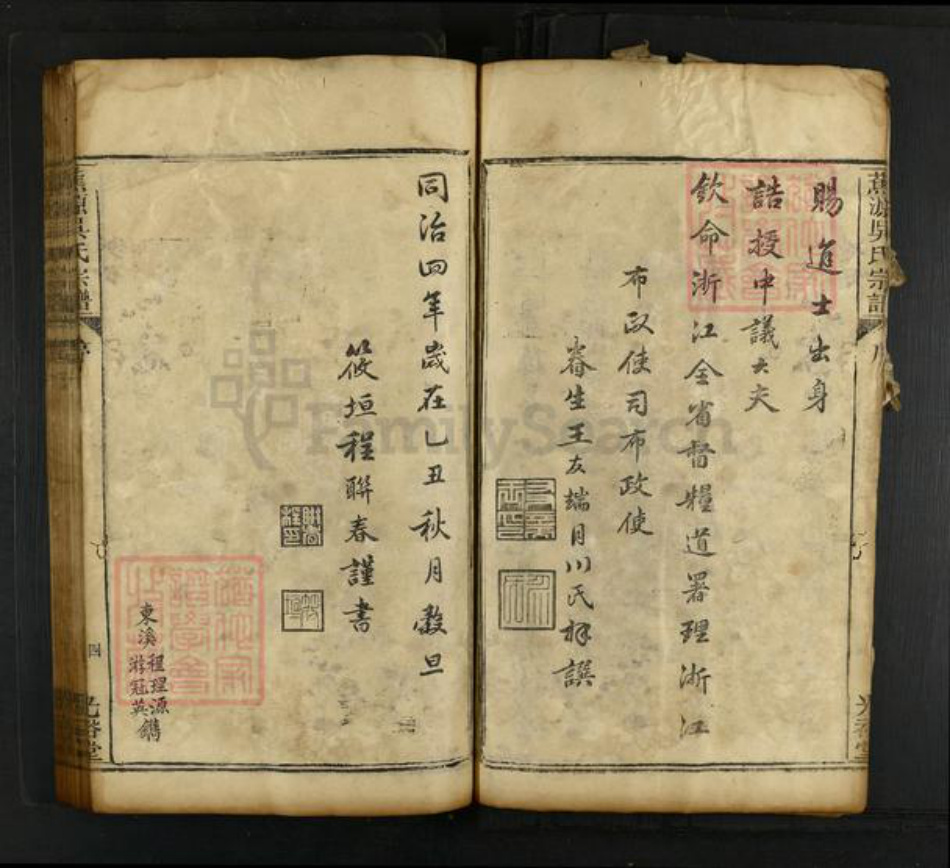 賜進士出身
誥授中議大夫
欽命浙江全省督糧道署理浙江
布政使司布政使
眷生王友端月川氏拜譔
同治四年歲在乙丑秋月穀旦
筱垣程聯春謹書
東溪程理源
游冠英鐫
吳氏宗譜
四
光裕堂
FamilySearch